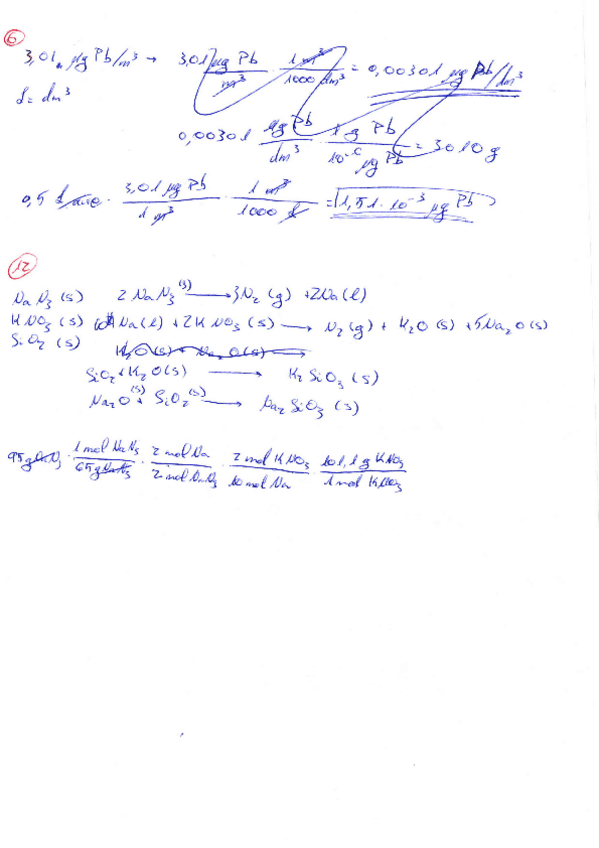 6
3,01 µg Pb/m³ → 3,01 µg Pb / m³ · 1 m³ / 1000 dm³ = 0,00301 µg Pb/dm³
L = dm³
0,00301 µg Pb / dm³ · 1 g Pb / 10⁻⁶ µg Pb = 3010 g
0,5 L · 3,01 µg Pb / 1 m³ · 1 m³ / 1000 L = 1,51 · 10⁻³ µg Pb
12
NaN₃ (s) 2 NaN₃ (s) → 3N₂ (g) + 2Na (l)
KNO₃ (s) 10 Na (l) + 2 KNO₃ (s) → N₂ (g) + K₂O (s) + 5Na₂O (s)
SiO₂ (s) K₂O (s) + Na₂O (s) →
SiO₂ + K₂O (s) → K₂SiO₃ (s)
Na₂O (s) + SiO₂ (s) → Na₂SiO₃ (s)
95 g NaN₃ · 1 mol NaN₃ / 65 g NaN₃ · 2 mol Na / 2 mol NaN₃ · 2 mol KNO₃ / 10 mol Na · 101,1 g KNO₃ / 1 mol KNO₃